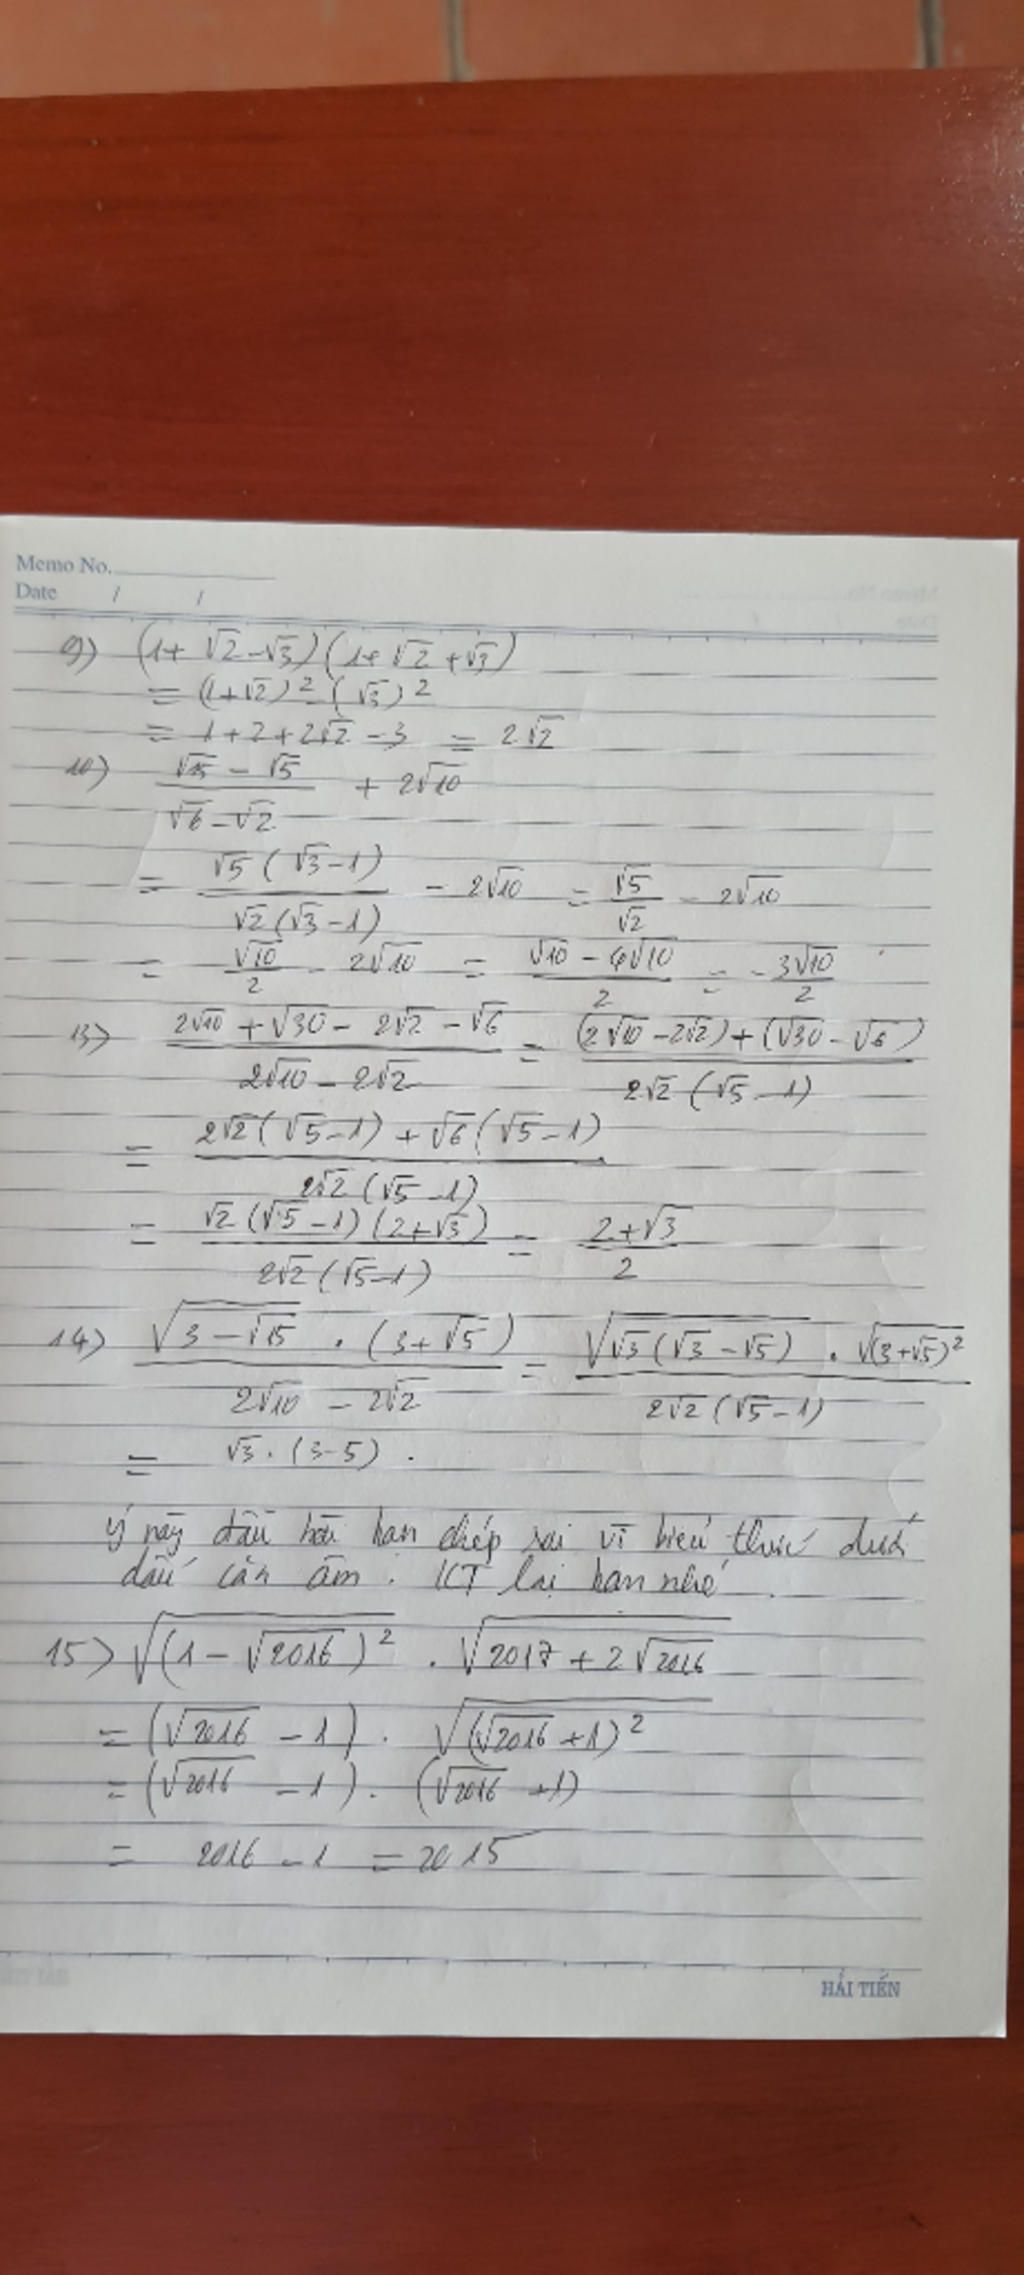 Memo No.
Date / /
9) (1+ √2 - √3)(1+ √2 + √3)
= (1+√2)² - (√3)²
= 1 + 2 + 2√2 - 3 = 2√2
10) (√15 - √5)/(√6 - √2) + 2√10
= √5(√3-1)/√2(√3-1) - 2√10 = √5/√2 - 2√10
= √10/2 - 2√10 = (√10 - 4√10)/2 = -3√10/2
13) (2√10 + √30 - 2√2 - √6)/(2√10 - 2√2) = ((2√10 - 2√2) + (√30 - √6))/2√2(√5-1)
= (2√2(√5-1) + √6(√5-1))/2√2(√5-1)
= √2(√5-1)(2+√3)/2√2(√5-1) = (2+√3)/2
14) √(3-√15) . (3+√5)/(2√10 - 2√2) = √(√3(√3-√5)) . √(3+√5)²/2√2(√5-1)
= √3.(3-5).
ý này đầu bài bạn chép sai vì biểu thức dưới
dấu căn âm. KT lại bạn nhé
15> √(1-√2016)² . √(2017+2√2016)
= (√2016 - 1) . √(√2016+1)²
= (√2016 - 1) . (√2016 +1)
= 2016 - 1 = 2015
HẢI TIẾN